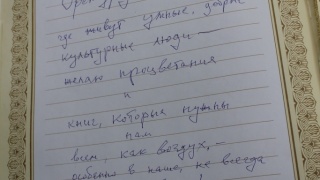 где живут умные, добрые
культурные люди —
желаю процветания
и
книг, которые нужны
нам
всем, как воздух, —
особенно в наше, не всегда